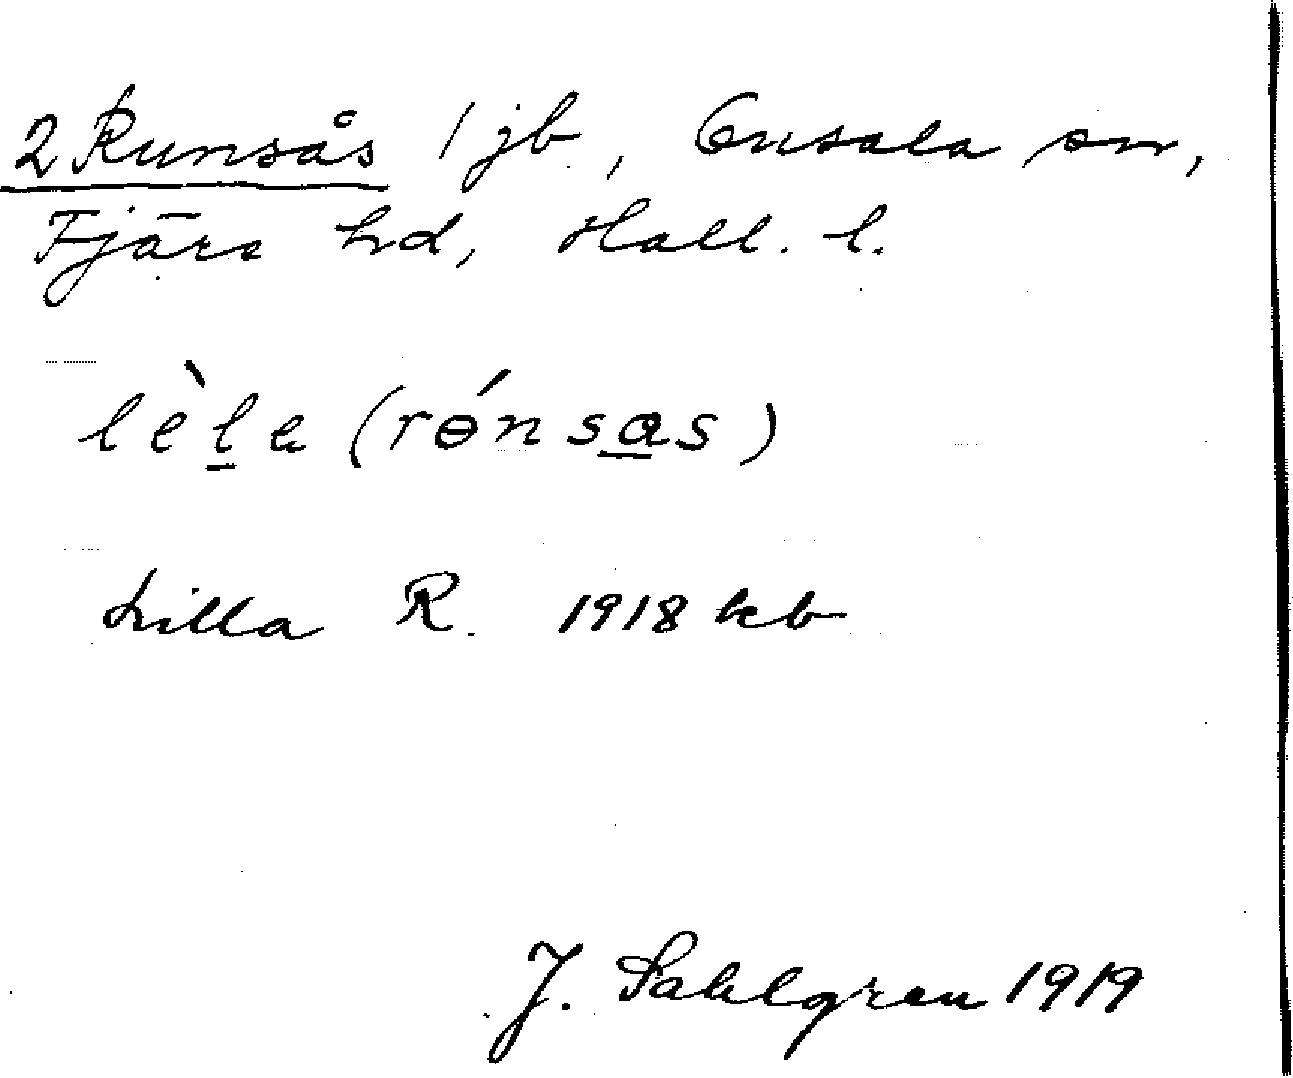 2 Runsås / jb, Onsala sn,
Fjäre hd, Hall. l.
lèl̲e (rɵ́nsa̲s)
Lilla R. 1918 kb
J. Sahlgren 1919